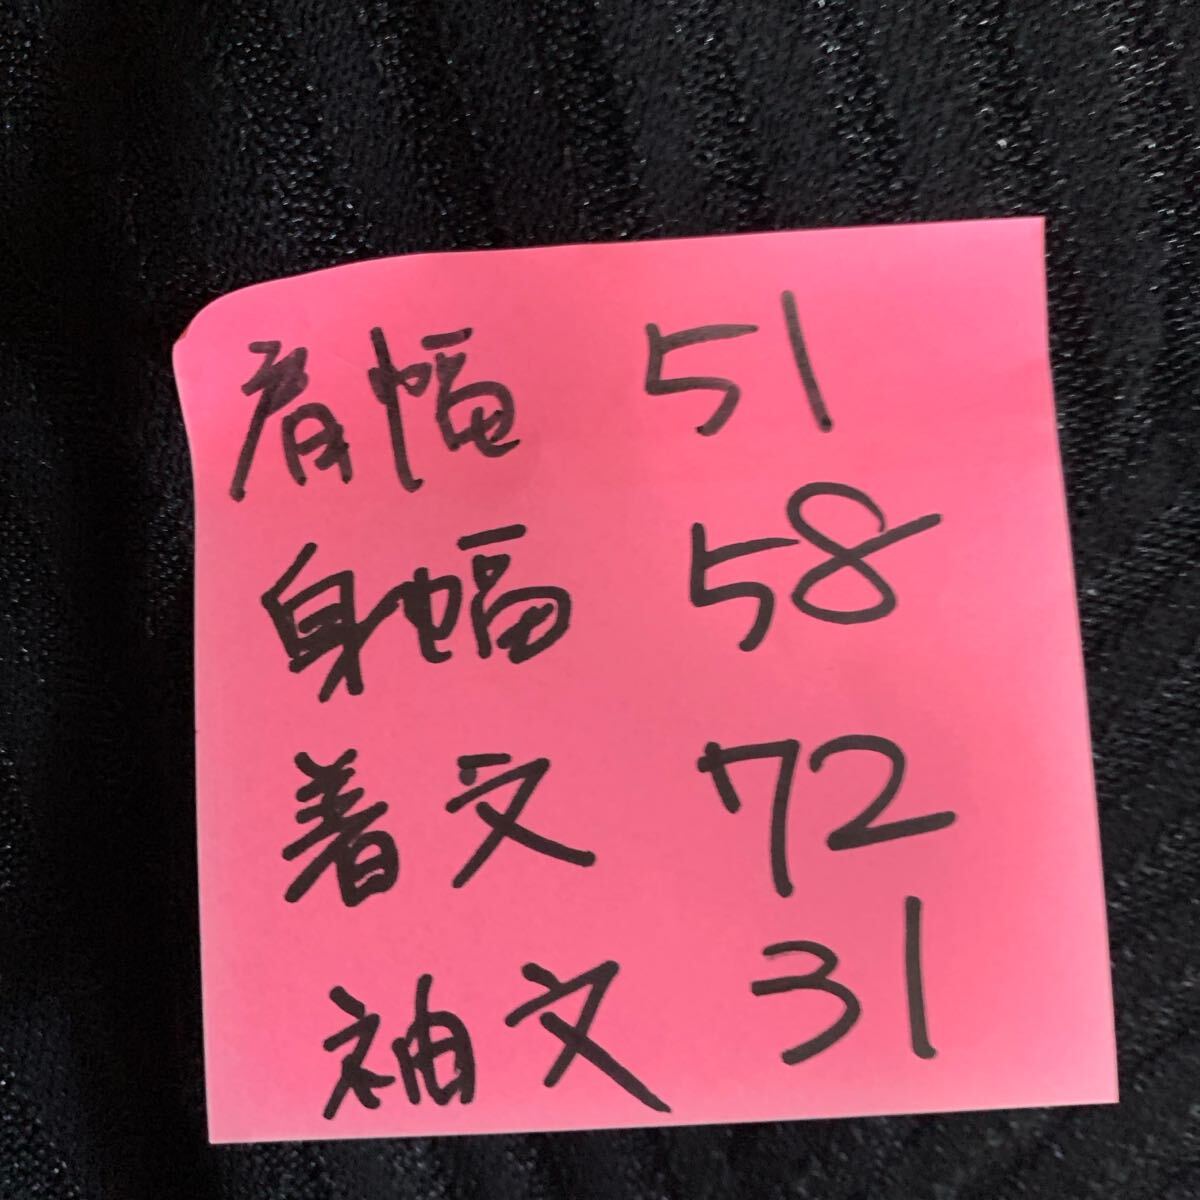 肩幅 51
身幅 58
着丈 72
袖丈 31